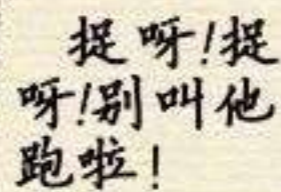 捉呀!捉
呀!别叫他
跑啦!